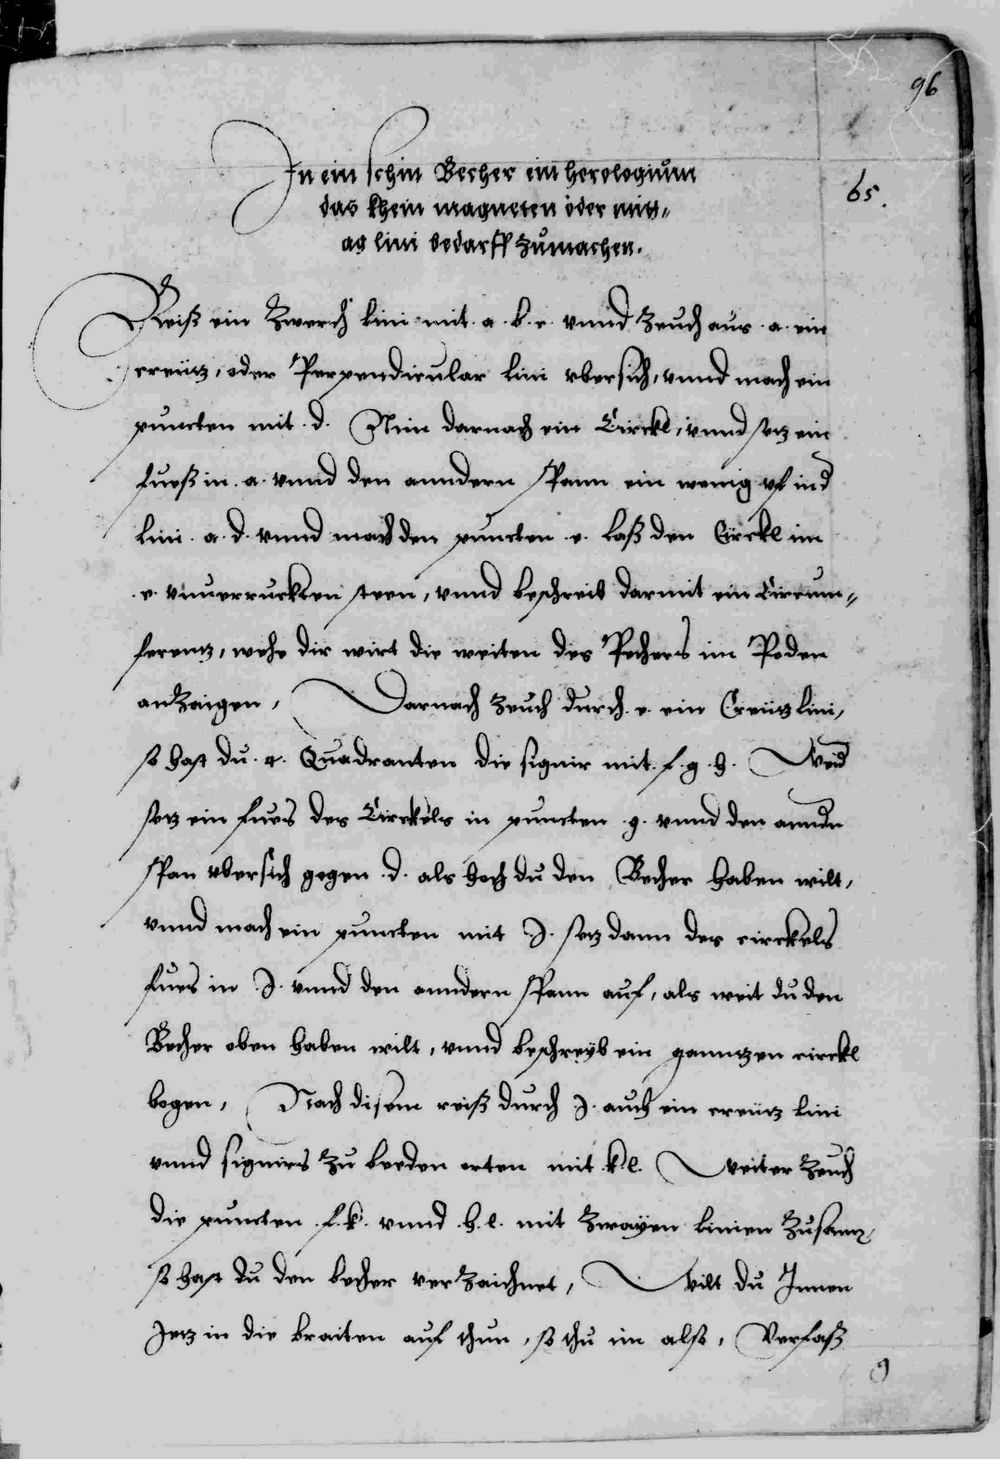 96
65.
In ein schin Becher ein horologium
das khein magneten oder mitt-
ag lini bedarff zumachen.
Reiß ein Zwerch lini mit .a.b.c. vnnd zeuch aus .a. ein
creütz, oder Perpendicular lini vbersich, vnnd mach ein
puncten mit .d. Nim darnach ein Circkl, vnnd setz ein
fueß in .a. vnnd den anndern Spann ein wenig vf in d
lini .a.d. vnnd mach den puncten .e. laß den Circkl im
.e. vnuerruckten steen, vnnd beschreib darmit ein Circum-
ferentz, wehe dir wirt die weiten des Pechers im Poden
anzaigen, Darnach zeuch durch .e. ein Creütz lini,
so hast du .4. Quadranten die signir mit .f.g.h. Vnd
setz ein fues des Circkels in puncten .g. vnnd den anndn
Span vbersich gegen .d. als hoch du den Becher haben wilt,
vnnd mach ein puncten mit .J. setz dann des circkels
fues in .J. vnnd den anndern Spann auf, als weit du den
Becher oben haben wilt, vnnd beschreyb ein ganntzen circkl
bogen, Nach disem reiß durch .J. auch ein creütz lini
vnnd signiers zu beeden orten mit .k.l. Weiter zeuch
die puncten .f.k. vnnd .h.l. mit zwayen linien zusamen,
so hast du den becher verzaichnet, Wilt du Innen
Jetz in die braiten auf thun, so thu im also, Verfaß
g